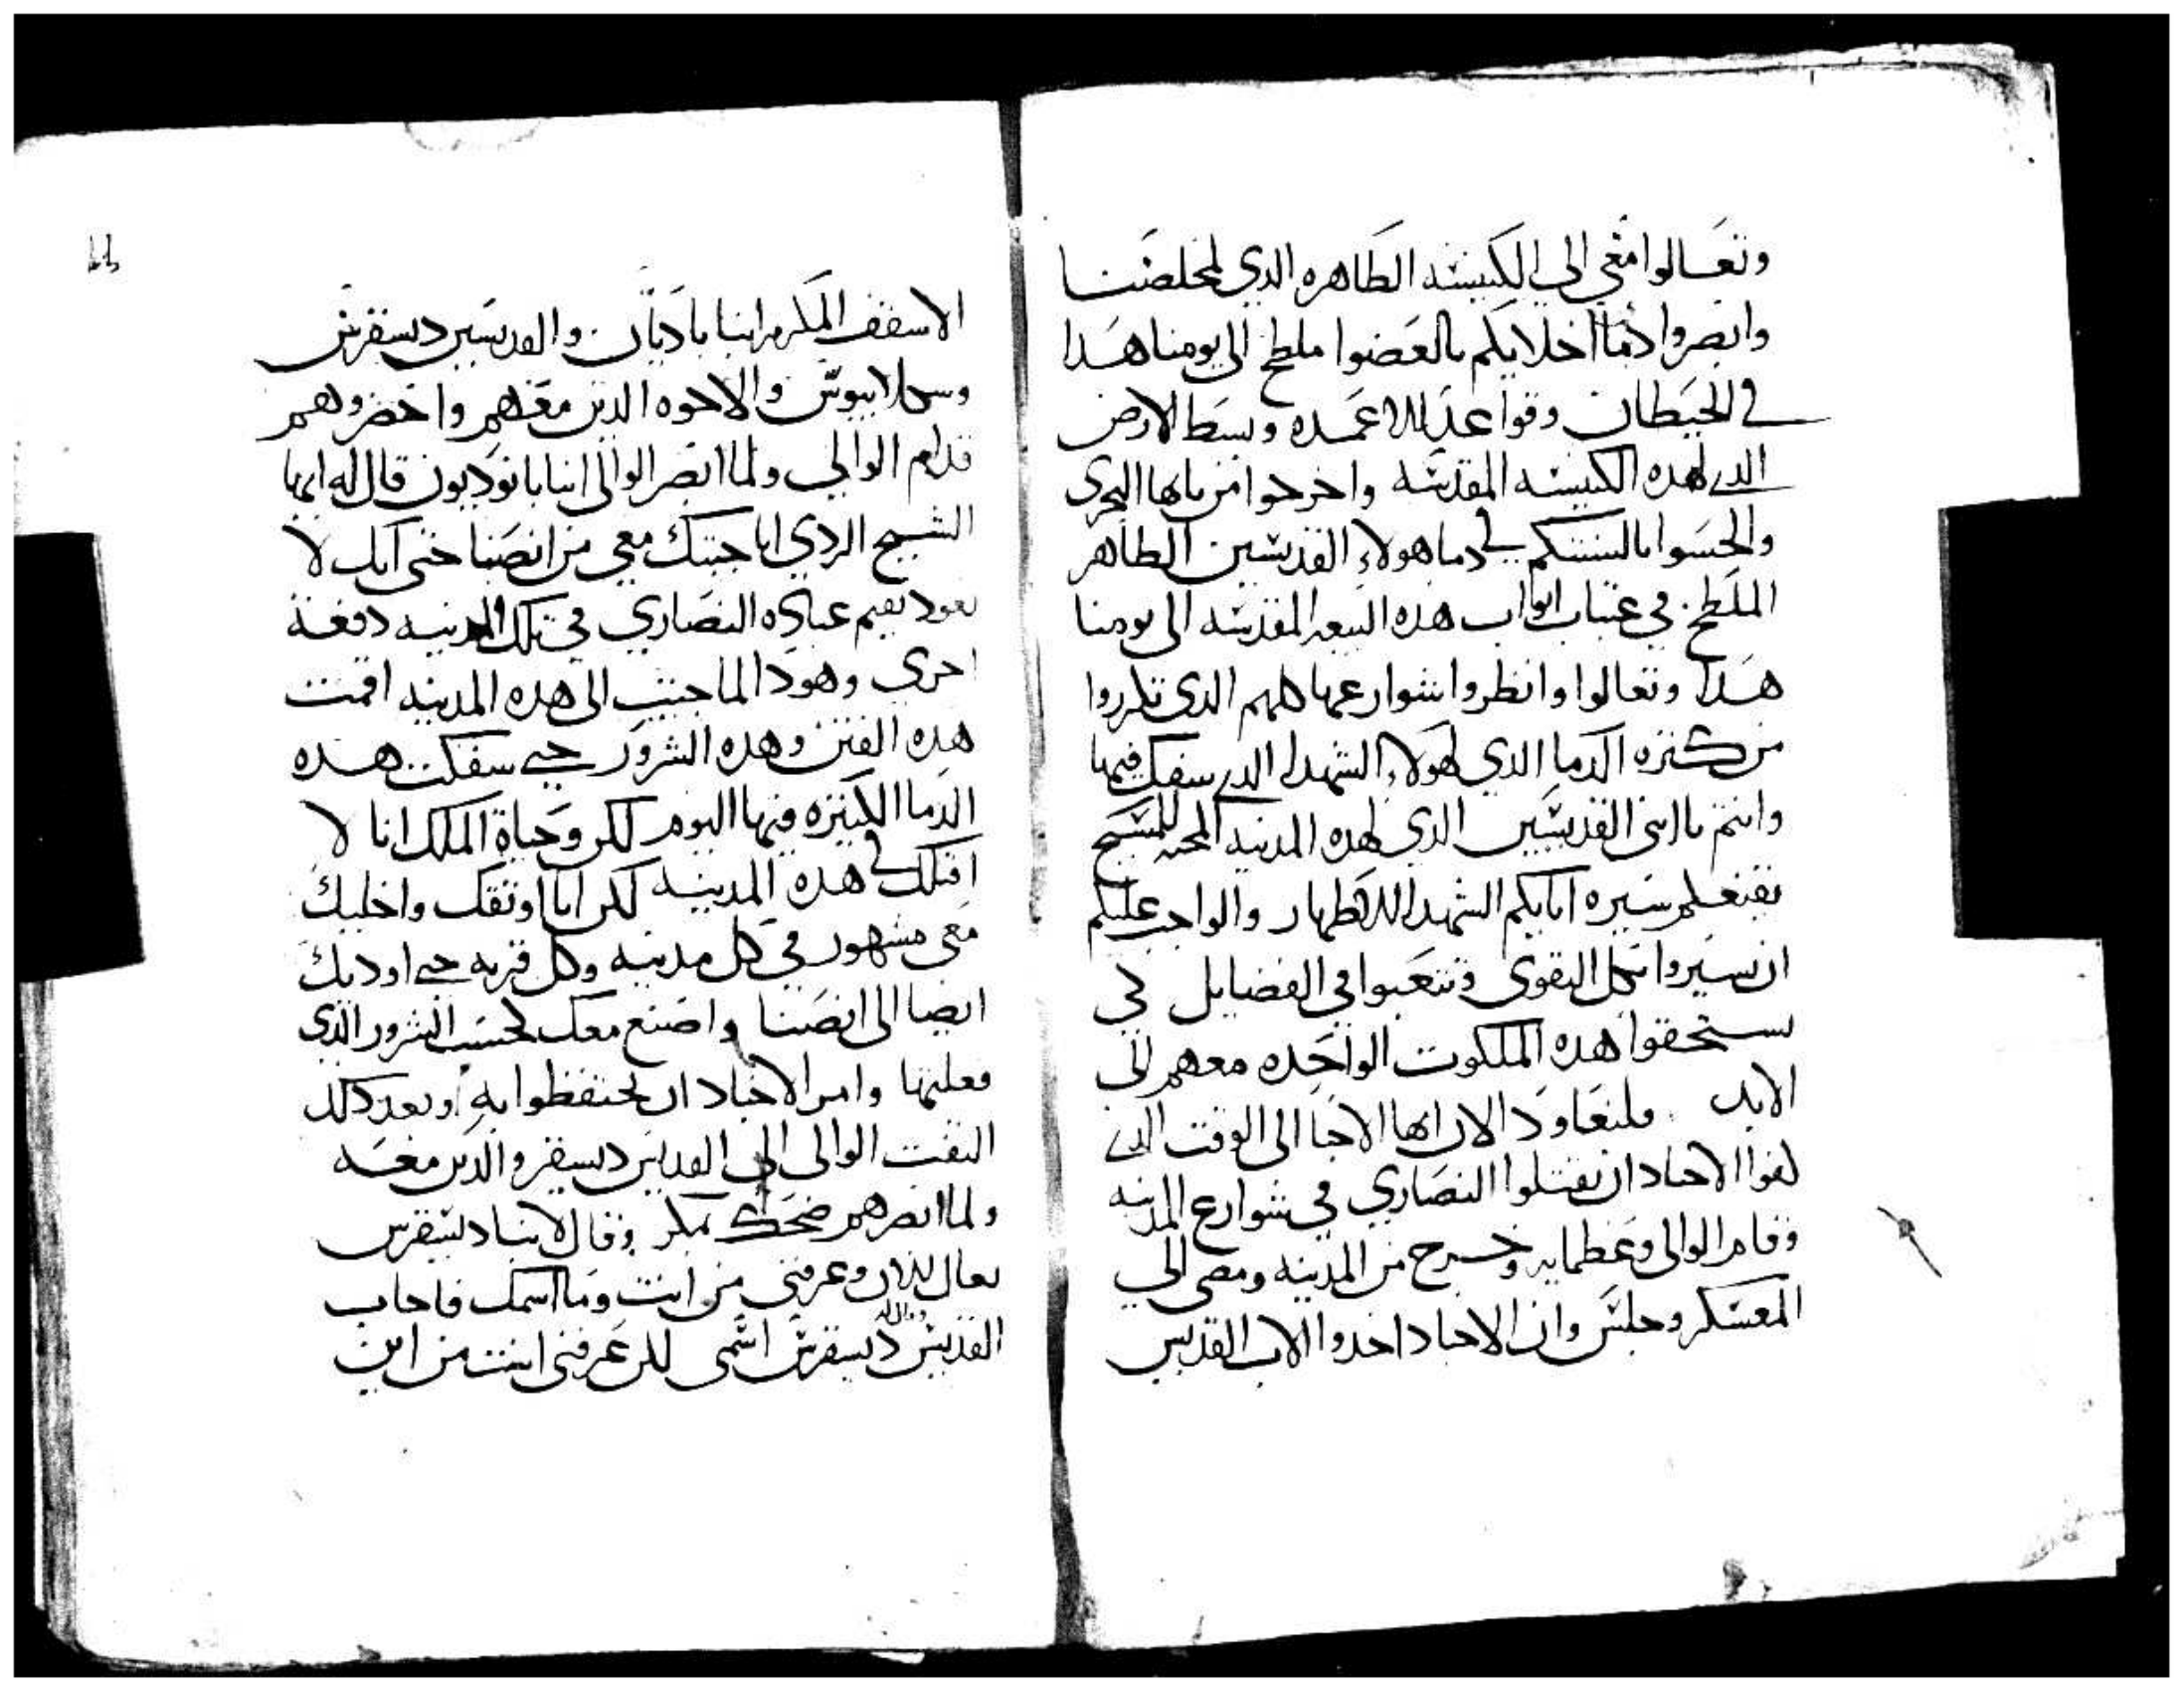 وتعالوا معي الي الكنيسه الطاهره الدي لمخلصنا
وابصروا دما اخلايكم بالعضوا ملطخ الي يومنا هدا
في الحيطان وقواعد الاعمده وبسط الارض
الدي لهده الكنيسه المقدسه واخرجوا من بابها البحري
والحسوا بالسنتكم في دما هولاء القديسين الطاهر
الملطخ في عتبات ابواب هده البيعه المقدسه الي يومنا
هدا وتعالوا وانظروا شوارعها كلهم الدي تكرروا
من كتره الدما الدي لهولاء الشهدا الدي سفك فيها
وانتم يا ابني القديسين الدي لهده المدينه المحبه للمسيح
سيره ابايكم الشهدا الاطهار والواجب عليكم
ان تسيروا بكل التقوي وتتعبوا في الفضايل لكي
تستحقوا هده الملكوت الواحده معهم الي
الابد فلنعاود الان ايها الاحبا الي الوقت الدي
الاجناد ان يقتلوا النصاري في شوارع المدينه
وقام الوالي وعظمايه وخرج من المدينه ومضي الي
المعسكر وجلس وان الاجناد اخدوا الاب القديس
الاسقف المكرم انبا باديان والقديسين ديسقرس
وسكلابيوس والاخوه الدين معهم واحضروهم
قدام الوالي ولما ابصر الوالي انبا باتوديون قال له ايها
الشيخ الردي انا جبتك معي من انصنا حتي انك لا
تعود تقيم عباده النصاري في تلك المدينه دفعة
اخري وهودا لما جيت الي هده المدينه اقمت
هده الفتن وهده الشرور حتي سفكت هده
الدما الكتيره فيها اليوم لكن وحياة الملك انا لا
اقتلك في هده المدينه لكن انا اوتقك واخليك
معي مشهور في كل مدينه وكل قريه حتي اوديك
ايضا الي انصنا واصنع معك بحسب الشرور الدي
فعلتها وامر الاجناد ان يحتفظوا به وبعد دلك
التفت الوالي الي القديس ديسقرو والدين معه
ولما ابصرهم ضحك بمكر وقال لانبا ديسقرس
تعال الان وعرفني من انت وما اسمك فاجاب
القديس وقال له ديسقرس اسمي لكن عرفني انت من اين